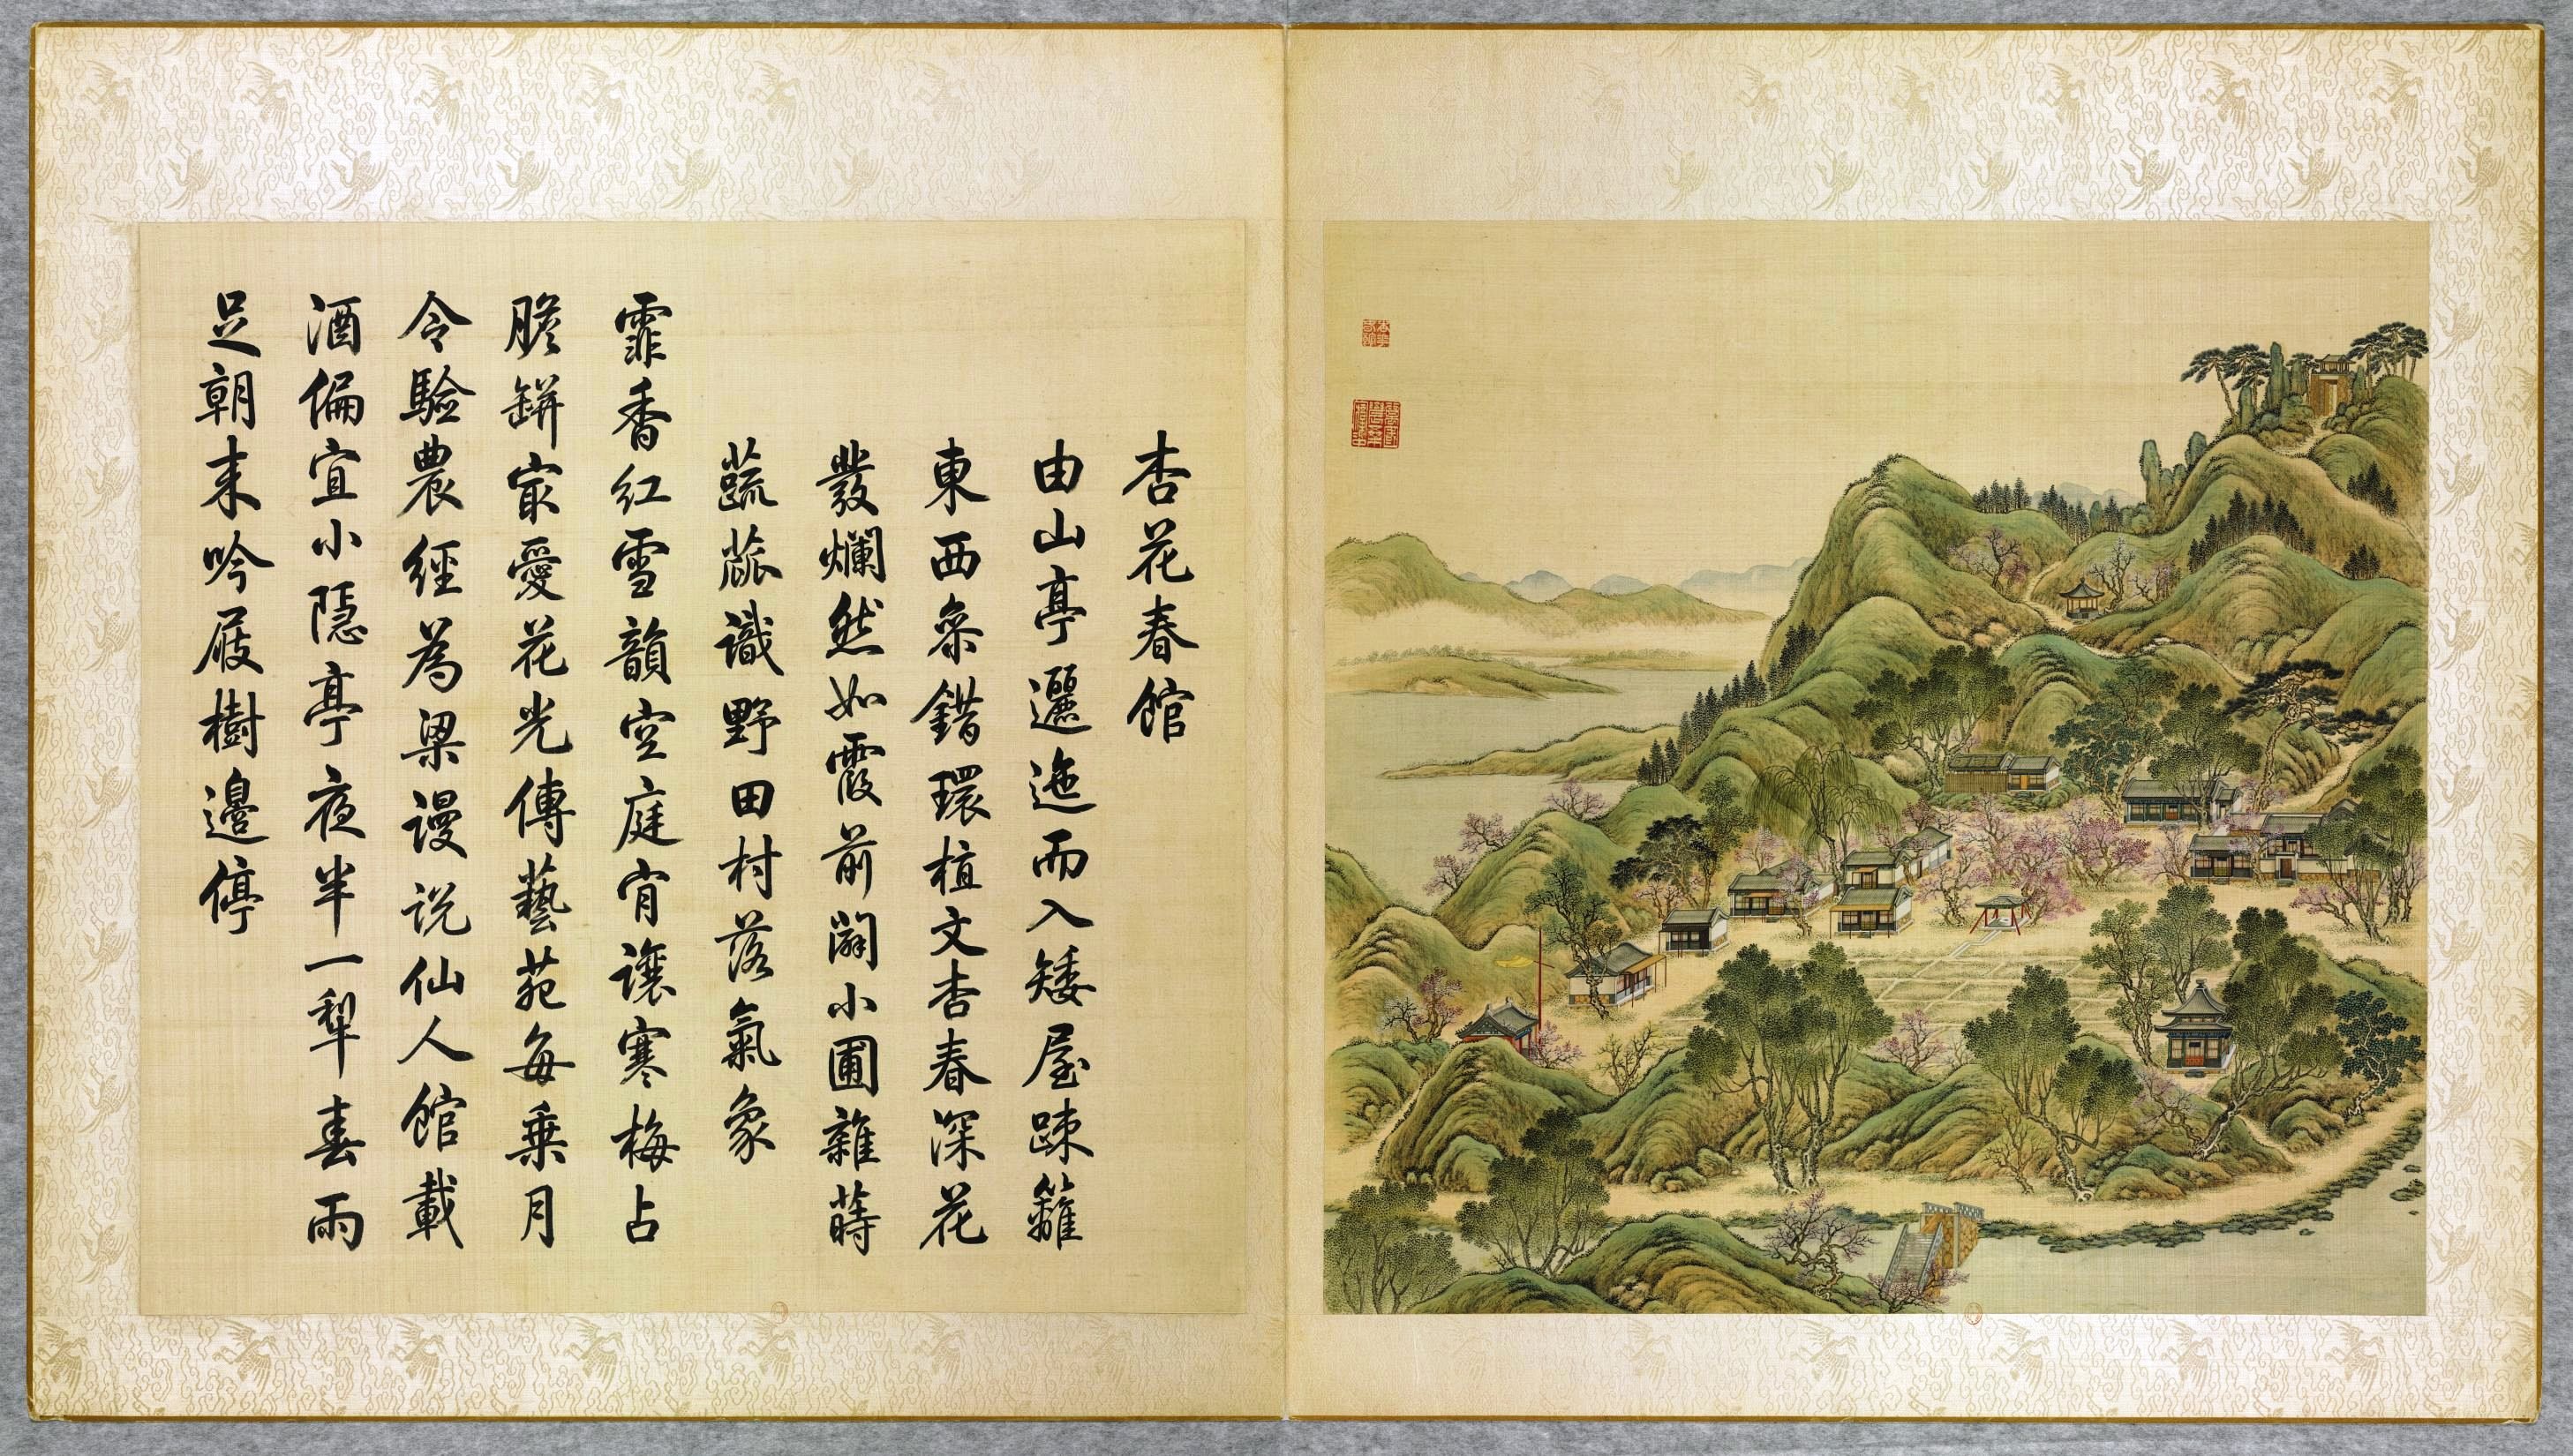 杏花春館
由山亭邐迤而入矮屋踈籬
東西叅錯環植文杏春深花
發爛然如霞前闢小圃雜蒔
蔬蓏識野田村落氣象
霏香紅雪韻空庭肯讓寒梅占
膽缾㝡愛花光傳藝苑每乗月
令驗農經為梁謾說仙人館載
酒偏宜小隱亭夜半一犁春雨
足朝来吟屐樹邊停